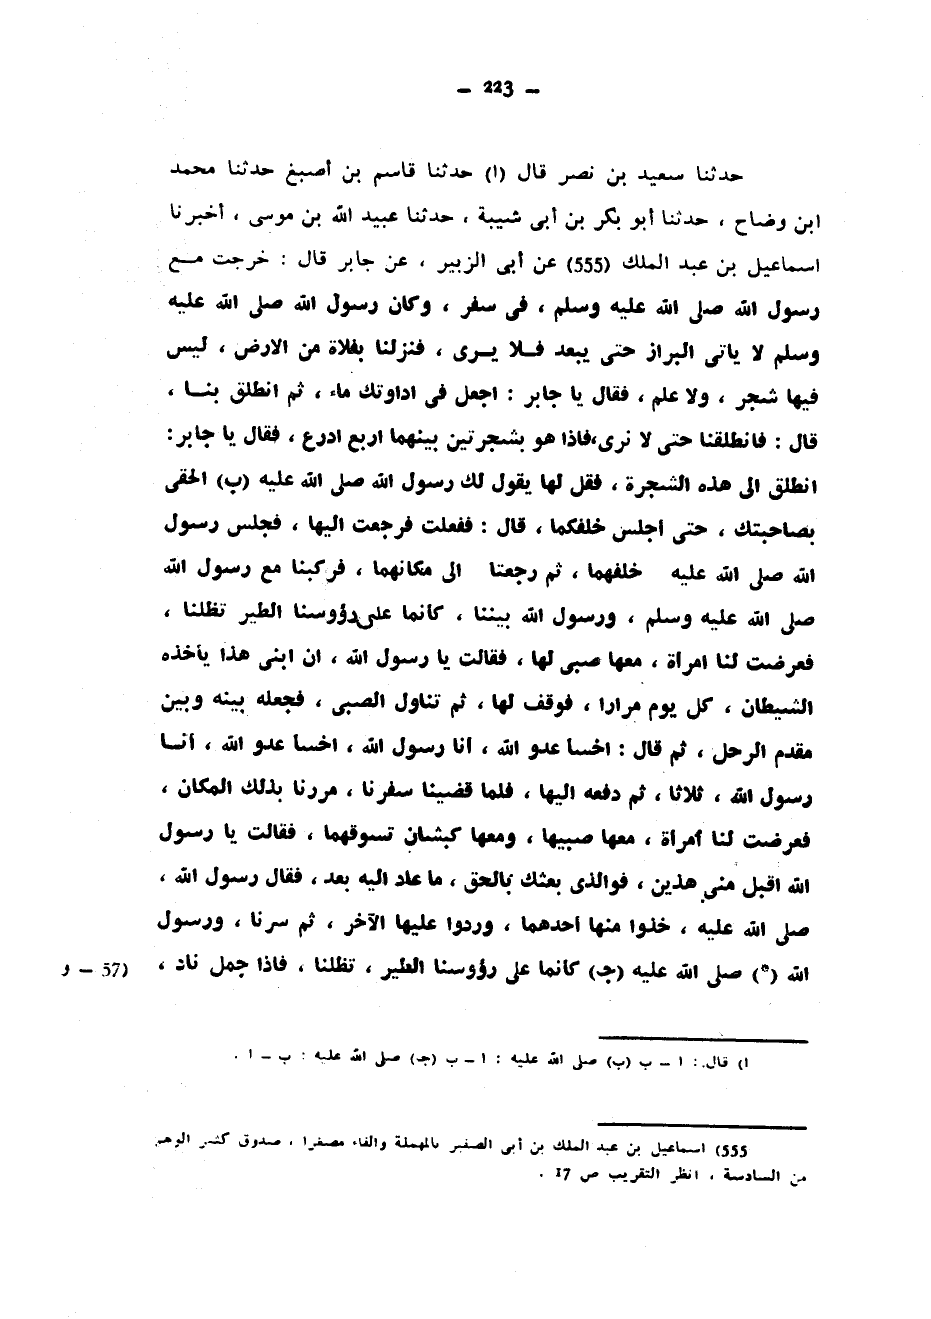 – 223 –
حدثنا سعيد بن نصر قال (ا) حدثنا قاسم بن أصبغ حدثنا محمد
ابن وضاح ، حدثنا أبو بكر بن أبى شيبة ، حدثنا عبيد الله بن موسى ، أخبرنا
اسماعيل بن عبد الملك (555) عن أبى الزبير ، عن جابر قال : خرجت مـــع
رسول الله صلى الله عليه وسلم ، فى سفر ، وكان رسول الله صلى الله عليه
وسلم لا ياتى البراز حتى يبعد فــلا يــرى ، فنزلنا بفلاة من الارض ، ليس
فيها شجر ، ولا علم ، فقال يا جابر : اجعل فى اداوتك ماء ، ثم انطلق بنــا ،
قال : فانطلقنا حتى لا نرى،فاذا هو بشجرتين بينهما اربع ادرع ، فقال يا جابر:
انطلق الى هذه الشجرة ، فقل لها يقول لك رسول الله صلى الله عليه (ب) الحقى
بصاحبتك ، حتى أجلس خلفكما ، قال : ففعلت فرجعت اليها ، فجلس رسول
الله صلى الله عليه خلفهما ، ثم رجعتا الى مكانهما ، فركبنا مع رسول الله
صلى الله عليه وسلم ، ورسول الله بيننا ، كأنما على رؤوسنا الطير تظلنا ،
فعرضت لنا امرأة ، معها صبى لها ، فقالت يا رسول الله ، ان ابنى هذا يأخذه
الشيطان ، كل يوم مرارا ، فوقف لها ، ثم تناول الصبى ، فجعله بينه وبين
مقدم الرحل ، ثم قال : اخسأ عدو الله ، أنا رسول الله ، اخسأ عدو الله ، أنــا
رسول الله ، ثلاثا ، ثم دفعه اليها ، فلما قضينا سفرنا ، مررنا بذلك المكان ،
فعرضت لنا أمرأة ، معها صبيها ، ومعها كبشان تسوقهما ، فقالت يا رسول
الله اقبل منى هذين ، فوالذى بعثك بالحق ، ما عاد اليه بعد ، فقال رسول الله ،
صلى الله عليه ، خذوا منها أحدهما ، وردوا عليها الآخر ، ثم سرنا ، ورسول
الله (*) صلى الله عليه (جـ) كانما على رؤوسنا الطير ، تظلنا ، فاذا جمل ناد ،
(57 – و
ا) قال : ا – ب (ب) صلى الله عليه : ا – ب (جـ) صلى الله عليه : ب – ا .
555) اسماعيل بن عبد الملك بن أبى الصفير بالمهملة والفاء مصغرا ، صدوق كثير الوهم
من السادسة ، انظر التقريب ص 17 .